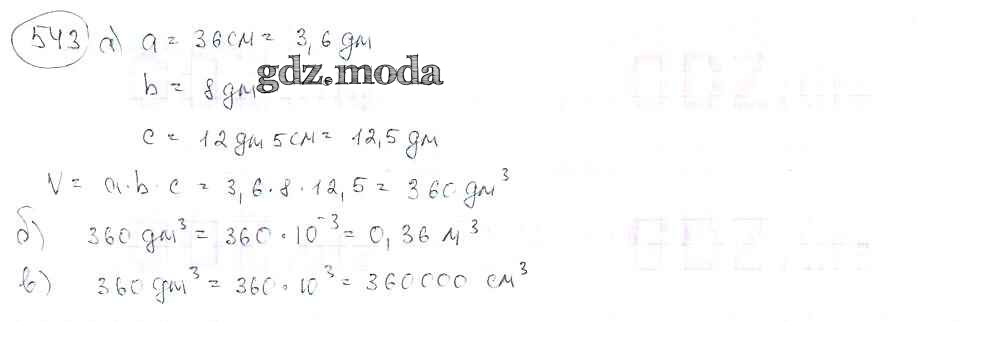 543 а) a = 36 см = 3,6 дм
b = 8 дм
gdz.moda
c = 12 дм 5 см = 12,5 дм
V = a·b·c = 3,6·8·12,5 = 360 дм³
б) 360 дм³ = 360·10⁻³ = 0,36 м³
в) 360 дм³ = 360·10³ = 360000 см³